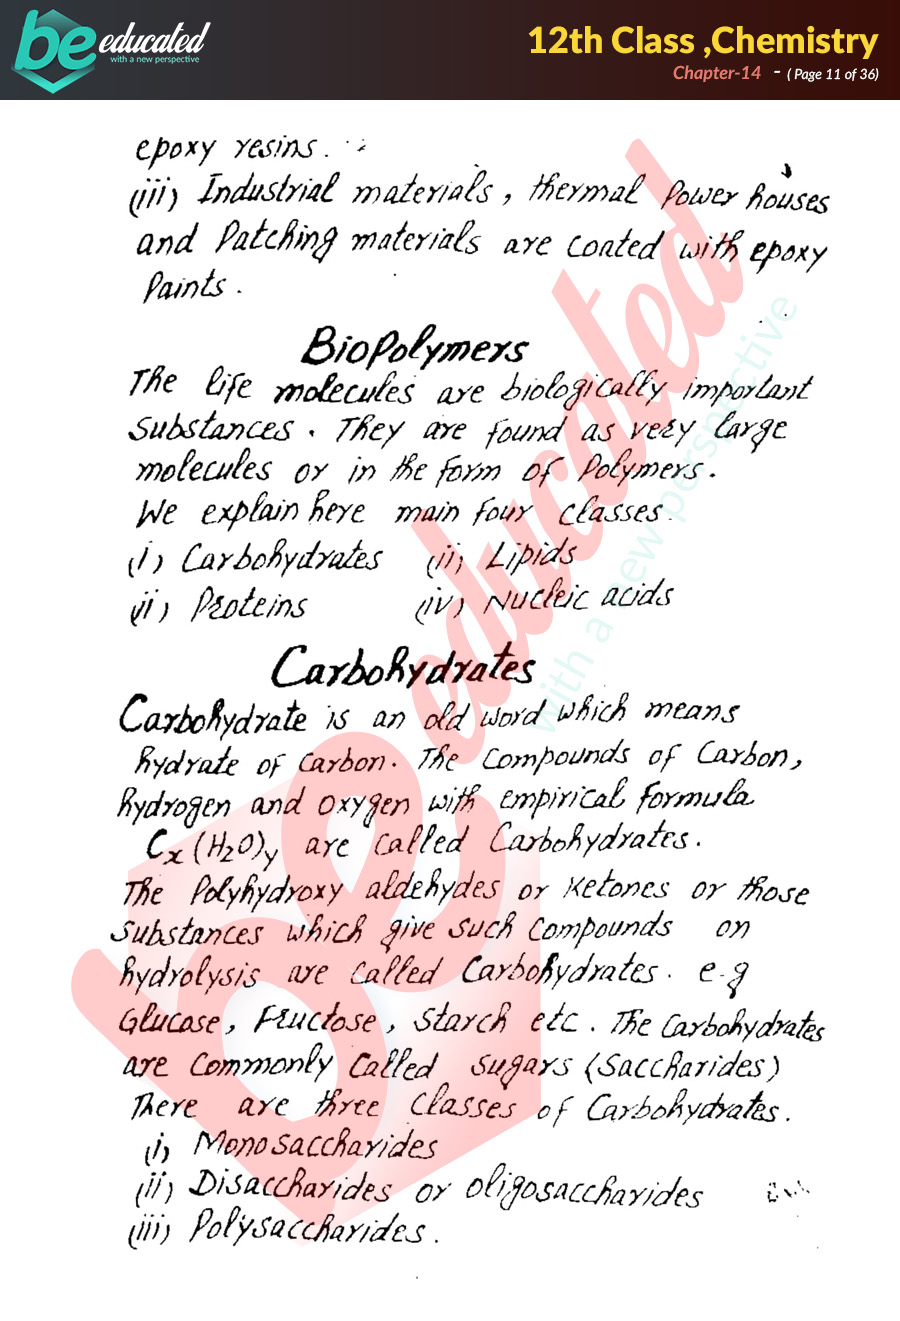 be educated
with a new perspective
12th Class ,Chemistry
Chapter-14 - ( Page 11 of 36)
epoxy resins.
(iii) Industrial materials, thermal Power houses
and Patching materials are coated with epoxy
Paints.
BioPolymers
The life molecules are biologically important
substances. They are found as very large
molecules or in the form of Polymers.
We explain here main four classes.
(i) Carbohydrates (ii) Lipids
(ii) Proteins (iv) Nucleic acids
Carbohydrates
Carbohydrate is an old word which means
hydrate of carbon. The compounds of Carbon,
hydrogen and oxygen with empirical formula
Cx(H2O)y are called Carbohydrates.
The Polyhydroxy aldehydes or Ketones or those
substances which give such compounds on
hydrolysis are called Carbohydrates. e.g
Glucose, Fructose, Starch etc. The Carbohydrates
are commonly called sugars (saccharides)
There are three classes of Carbohydrates.
(i) Monosaccharides
(ii) Disaccharides or oligosaccharides
(iii) Polysaccharides.
be educated
with a new perspective